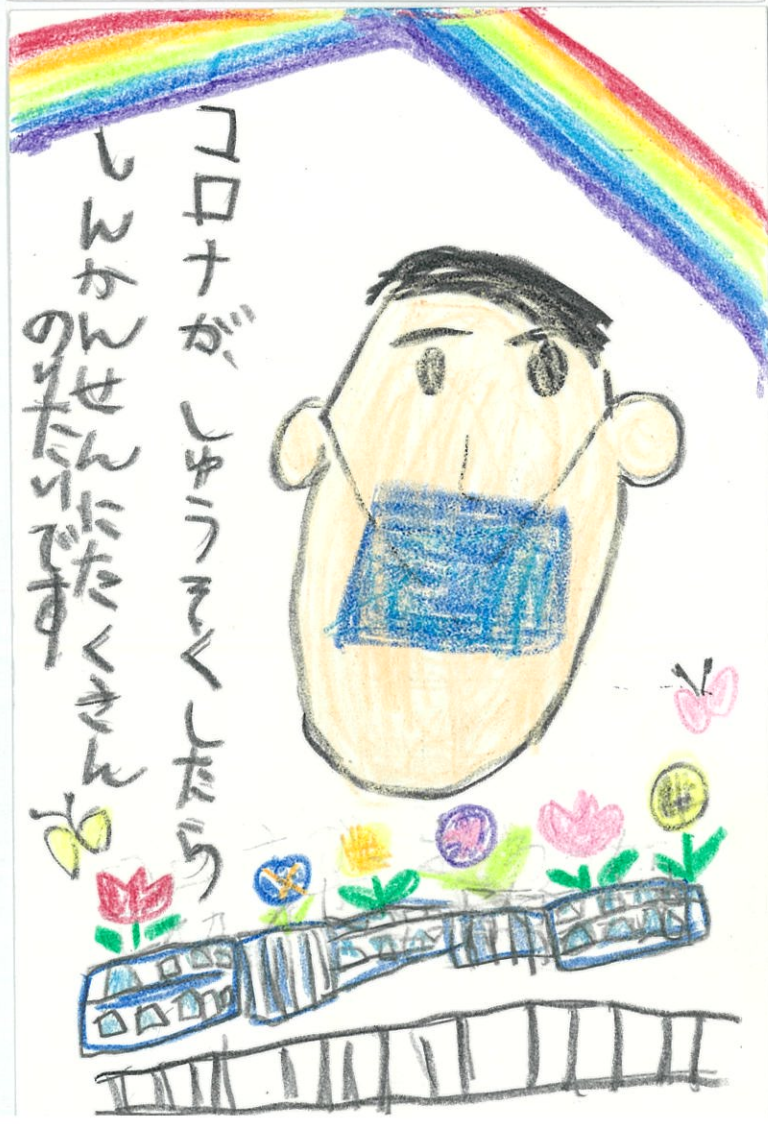 コロナが、しゅうそくしたら
しんかんせんにたくさん
のりたいです